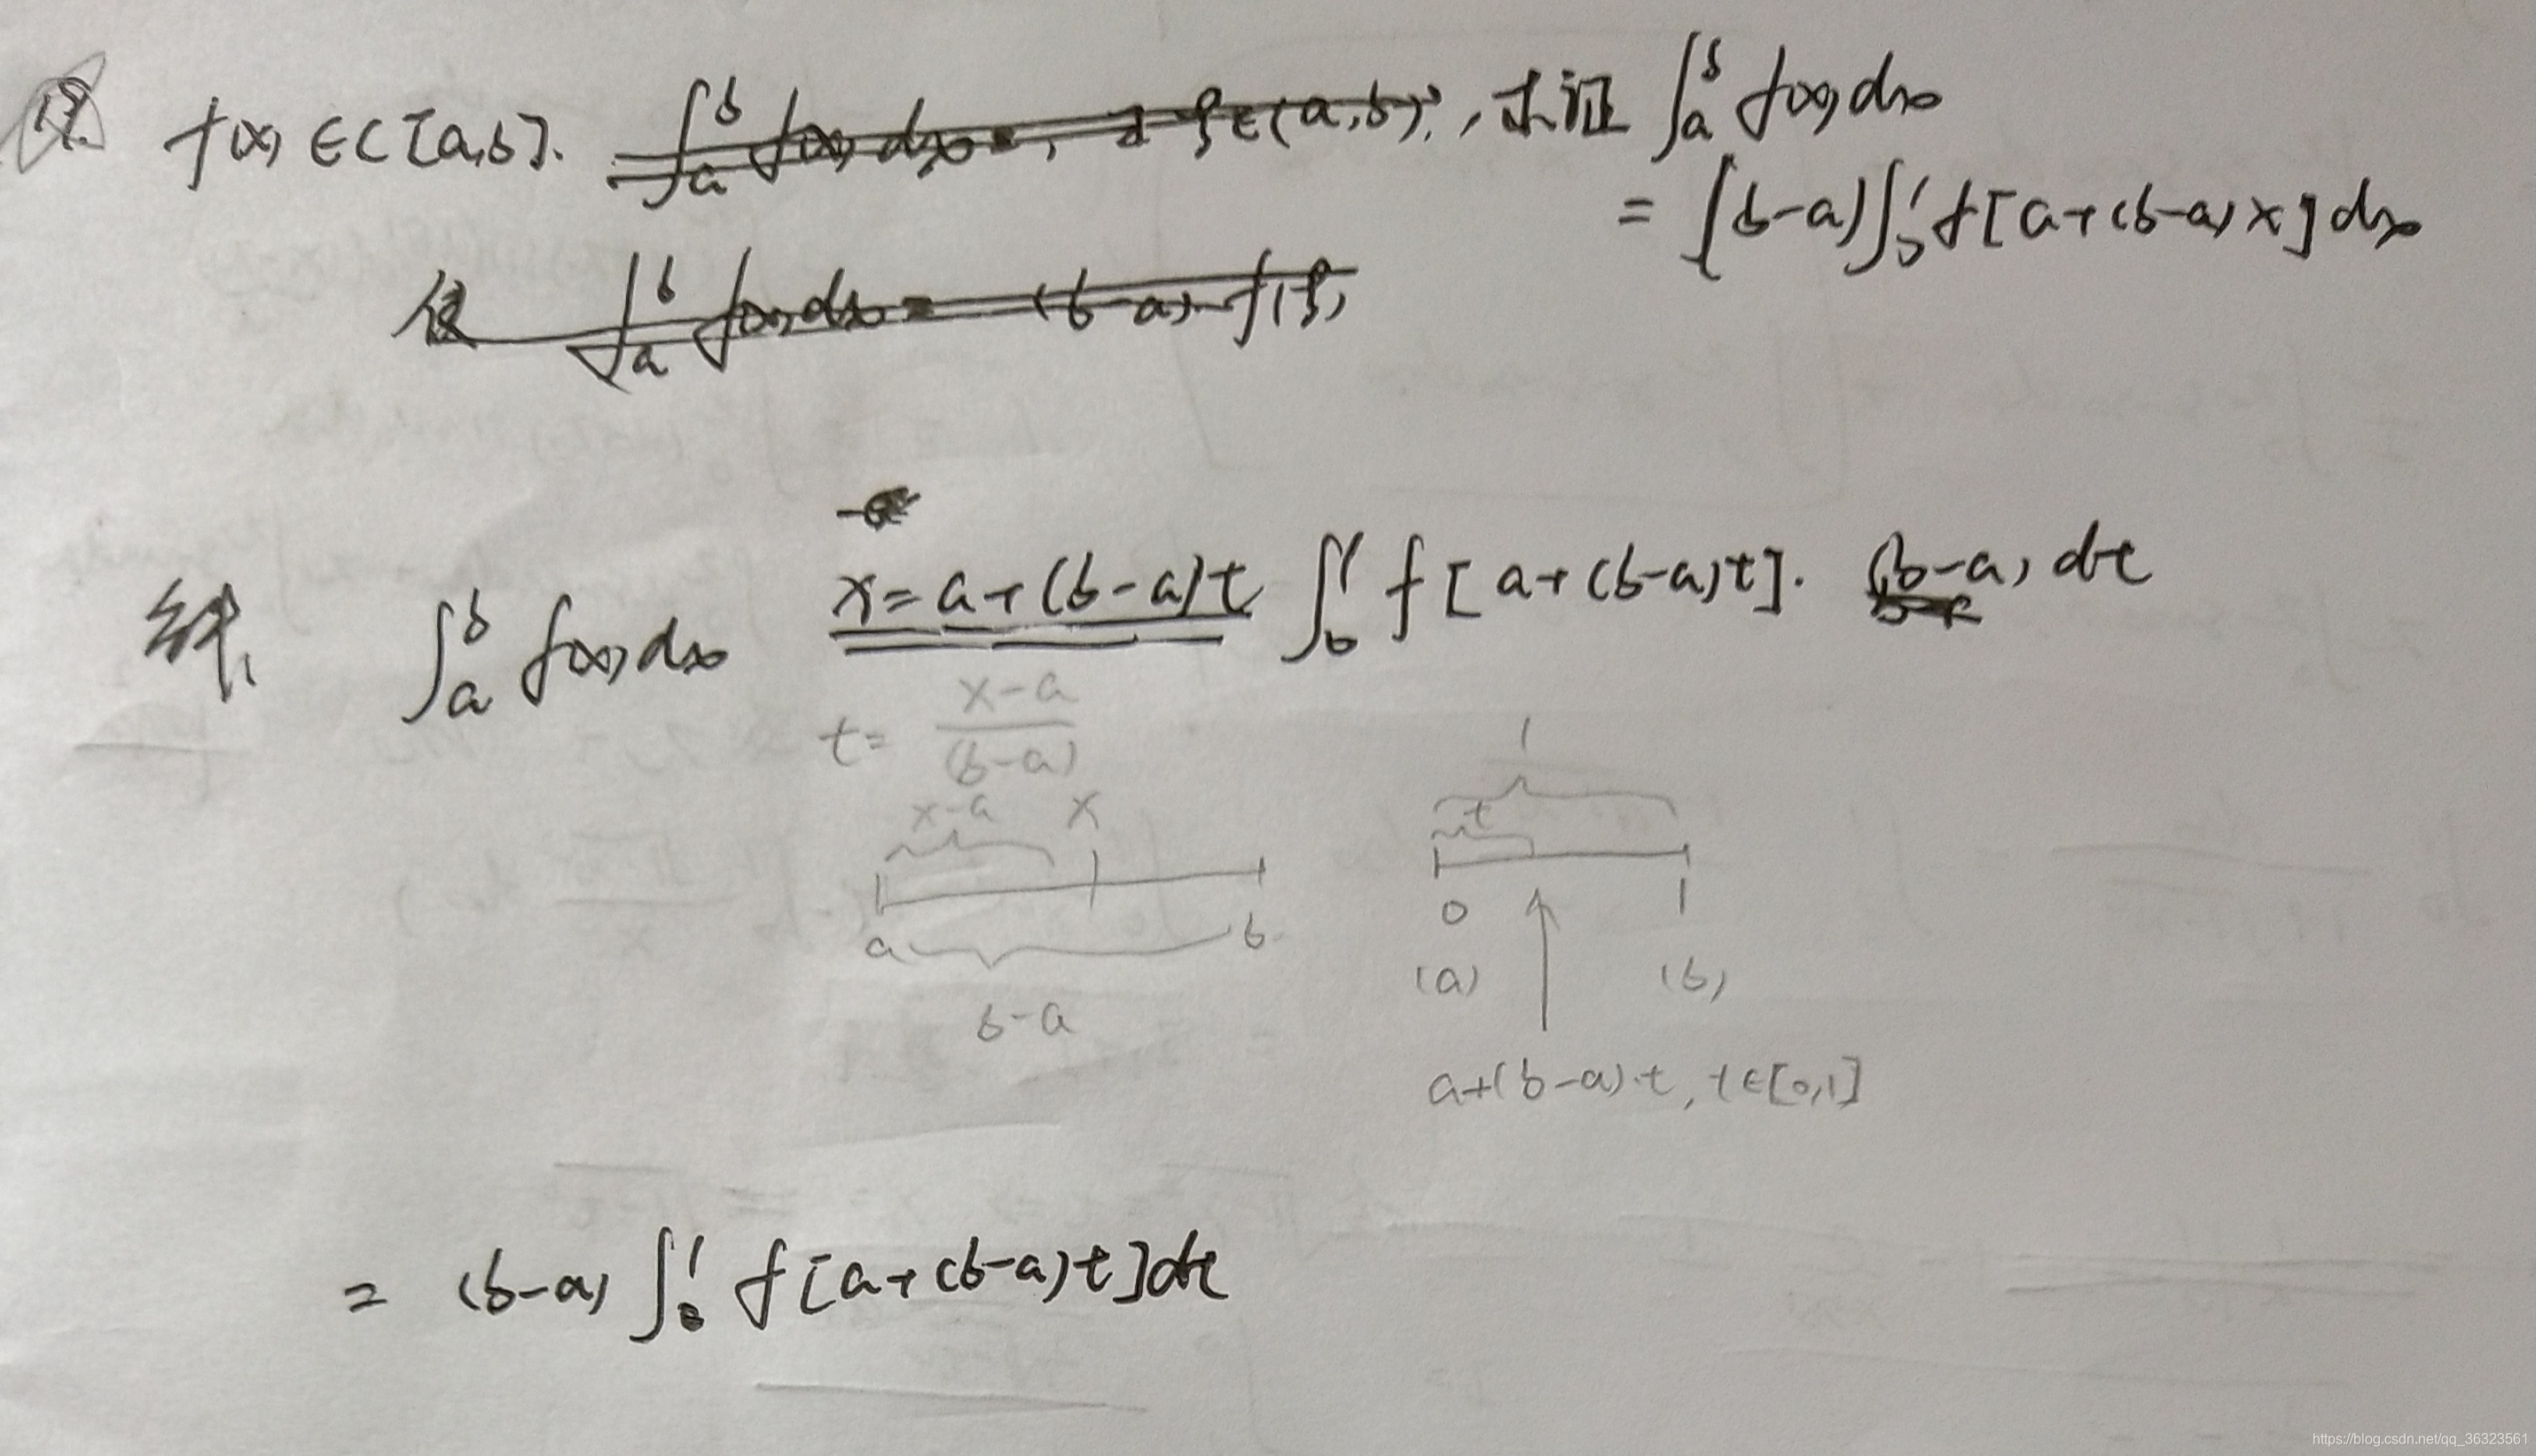 f(x)∈C[a,b]. ∫_a^b f(x)dx , ∃ ξ∈(a,b), 求证 ∫_a^b f(x)dx
= (b-a)∫_0^1 f[a+(b-a)x]dx
使 ∫_a^b f(x)dx = (b-a)·f(ξ)
∫_a^b f(x)dx x=a+(b-a)t ∫_0^1 f[a+(b-a)t]·(b-a)dt
t= (x-a)/(b-a)
1
x-a x t
a b 0 1
(a) (b)
b-a
a+(b-a)·t, t∈[0,1]
= (b-a)∫_0^1 f[a+(b-a)t]dt
https://blog.csdn.net/qq_36323561